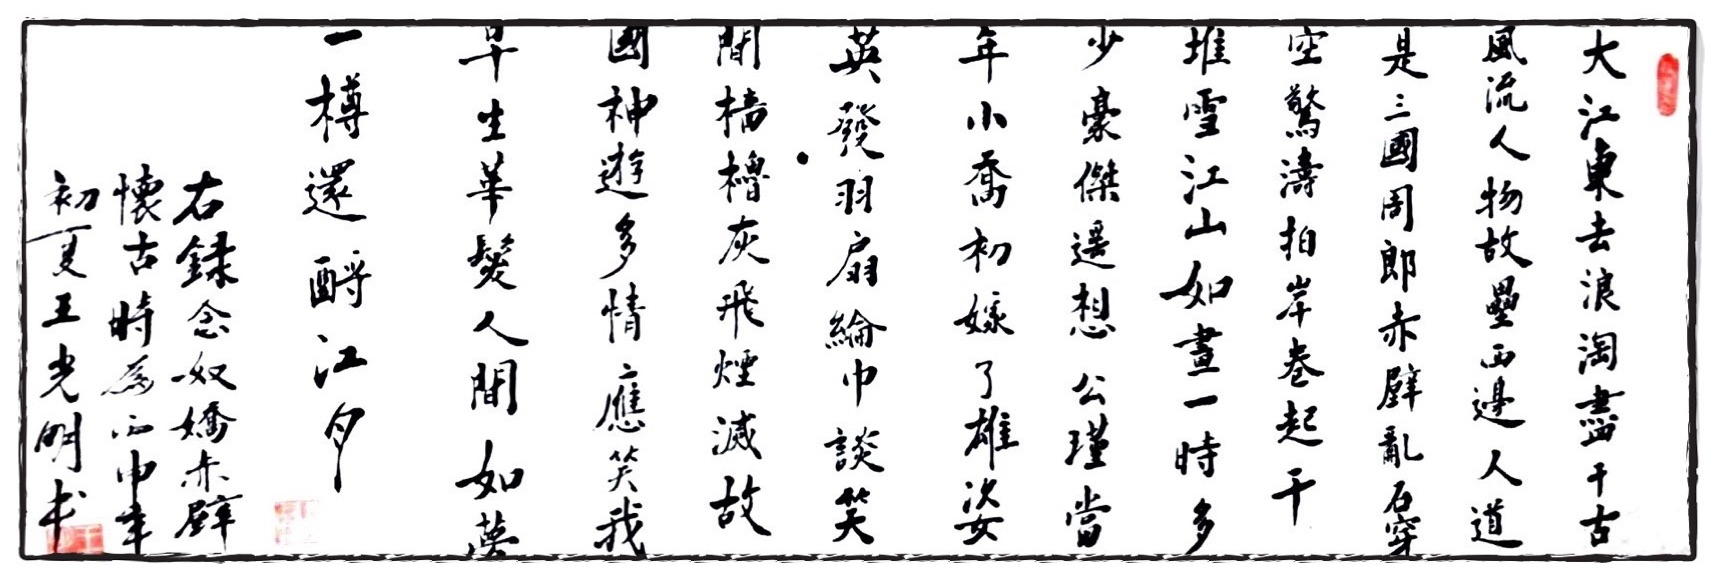 大江東去浪淘盡千古
風流人物故壘西邊人道
是三國周郎赤壁亂石穿
空驚濤拍岸卷起千
堆雪江山如畫一時多
少豪傑遥想公瑾當
年小喬初嫁了雄姿
英發羽扇綸巾談笑
間檣櫓灰飛煙滅故
國神遊多情應笑我
早生華髮人間如夢
一樽還酹江月
右録念奴嬌赤壁
懷古時為丙申年
初夏王光明书